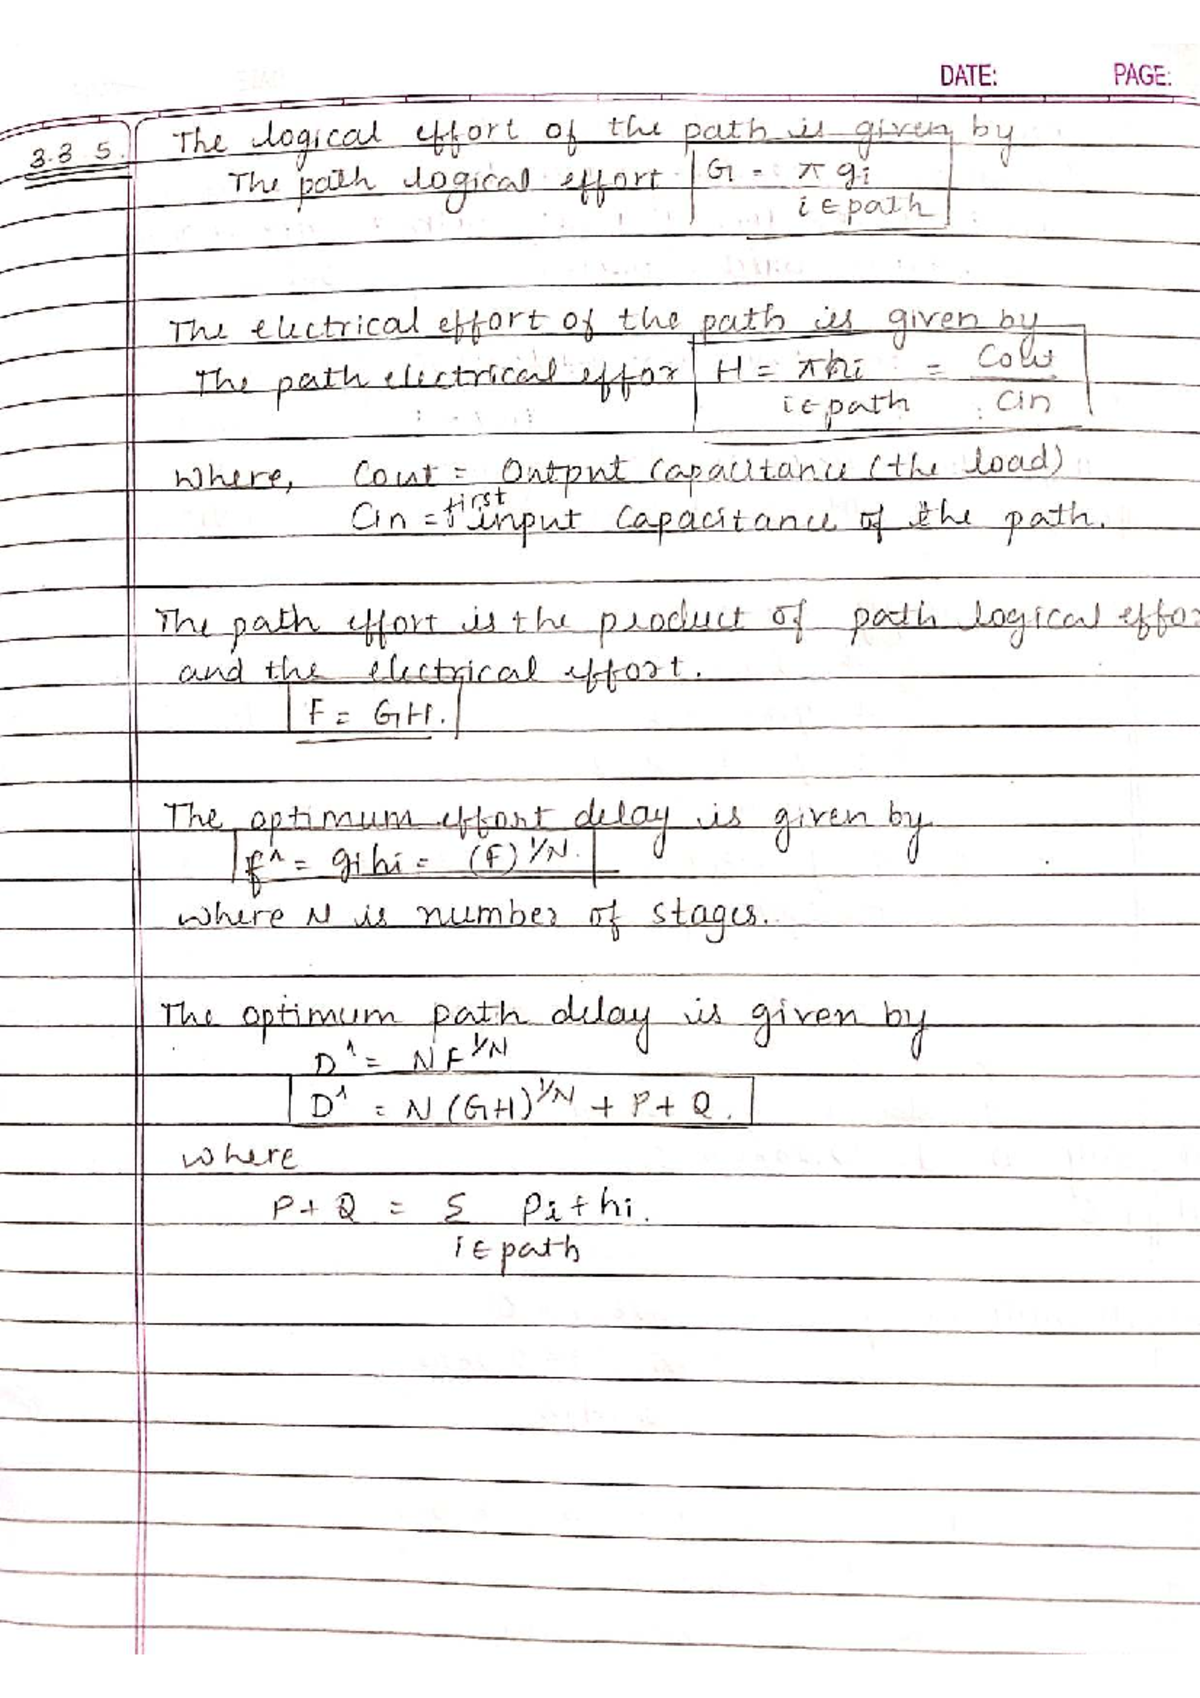 DATE: PAGE:
3.3 5. The logical effort of the path is given by
The path logical effort G = π gi
i ∈ path
The electrical effort of the path is given by
The path electrical effor H = πhi = Cout
i ∈ path Cin
where, Cout = Output Capacitance (the load)
first
Cin = input Capacitance of the path.
The path effort is the product of path logical effor
and the electrical effort.
F = GH.
The optimum effort delay is given by
f^ = gihi = (F)^1/N.
where N is number of stages.
The optimum path delay is given by
D^ = NF^1/N
D^ = N(GH)^1/N + P + Q.
where
P + Q = Σ Pi + hi.
i ∈ path